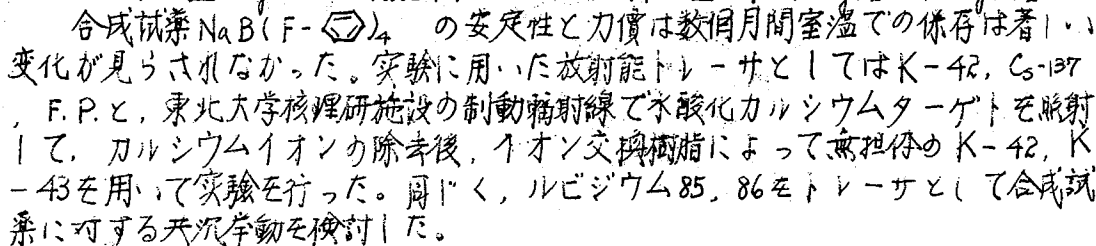 合成試薬NaB(F-⌬)4 の安定性と力價は数個月間室温での保存は著しい
変化が見らされなかった。実験に用いた放射能トレーサとしてはK-42, Cs-137
, F.P.と, 東北大学核理研施設の制動輻射線で水酸化カルシウムターゲトを照射
して, カルシウムイオンの除去後, イオン交換樹脂によって無担体のK-42, K
-43を用いて実験を行った。同じく, ルビジウム85, 86をトレーサとして合成試
薬に対する共沈挙動を検討した。